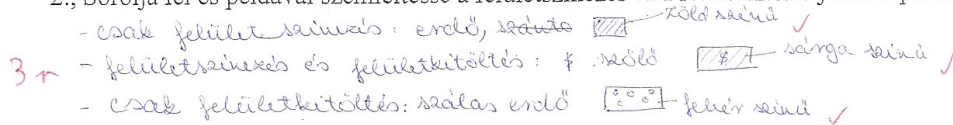 2., Sorolja fel és példával szemléltesse a felületszínezés
- csak felület színezés: erdő, szántó zöld színű
3 - felületszínezés és felületkitöltés: szőlő $ sárga színű
- csak felületkitöltés: szálas erdő fehér színű